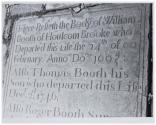 Here Resteth the Body of William
Booth of Houlcom Brooke who
Departed this Life the 24th of
February Anno Do:
Also Thomas Booth his
Son who departed this Life
1746
Also Roger Booth Son